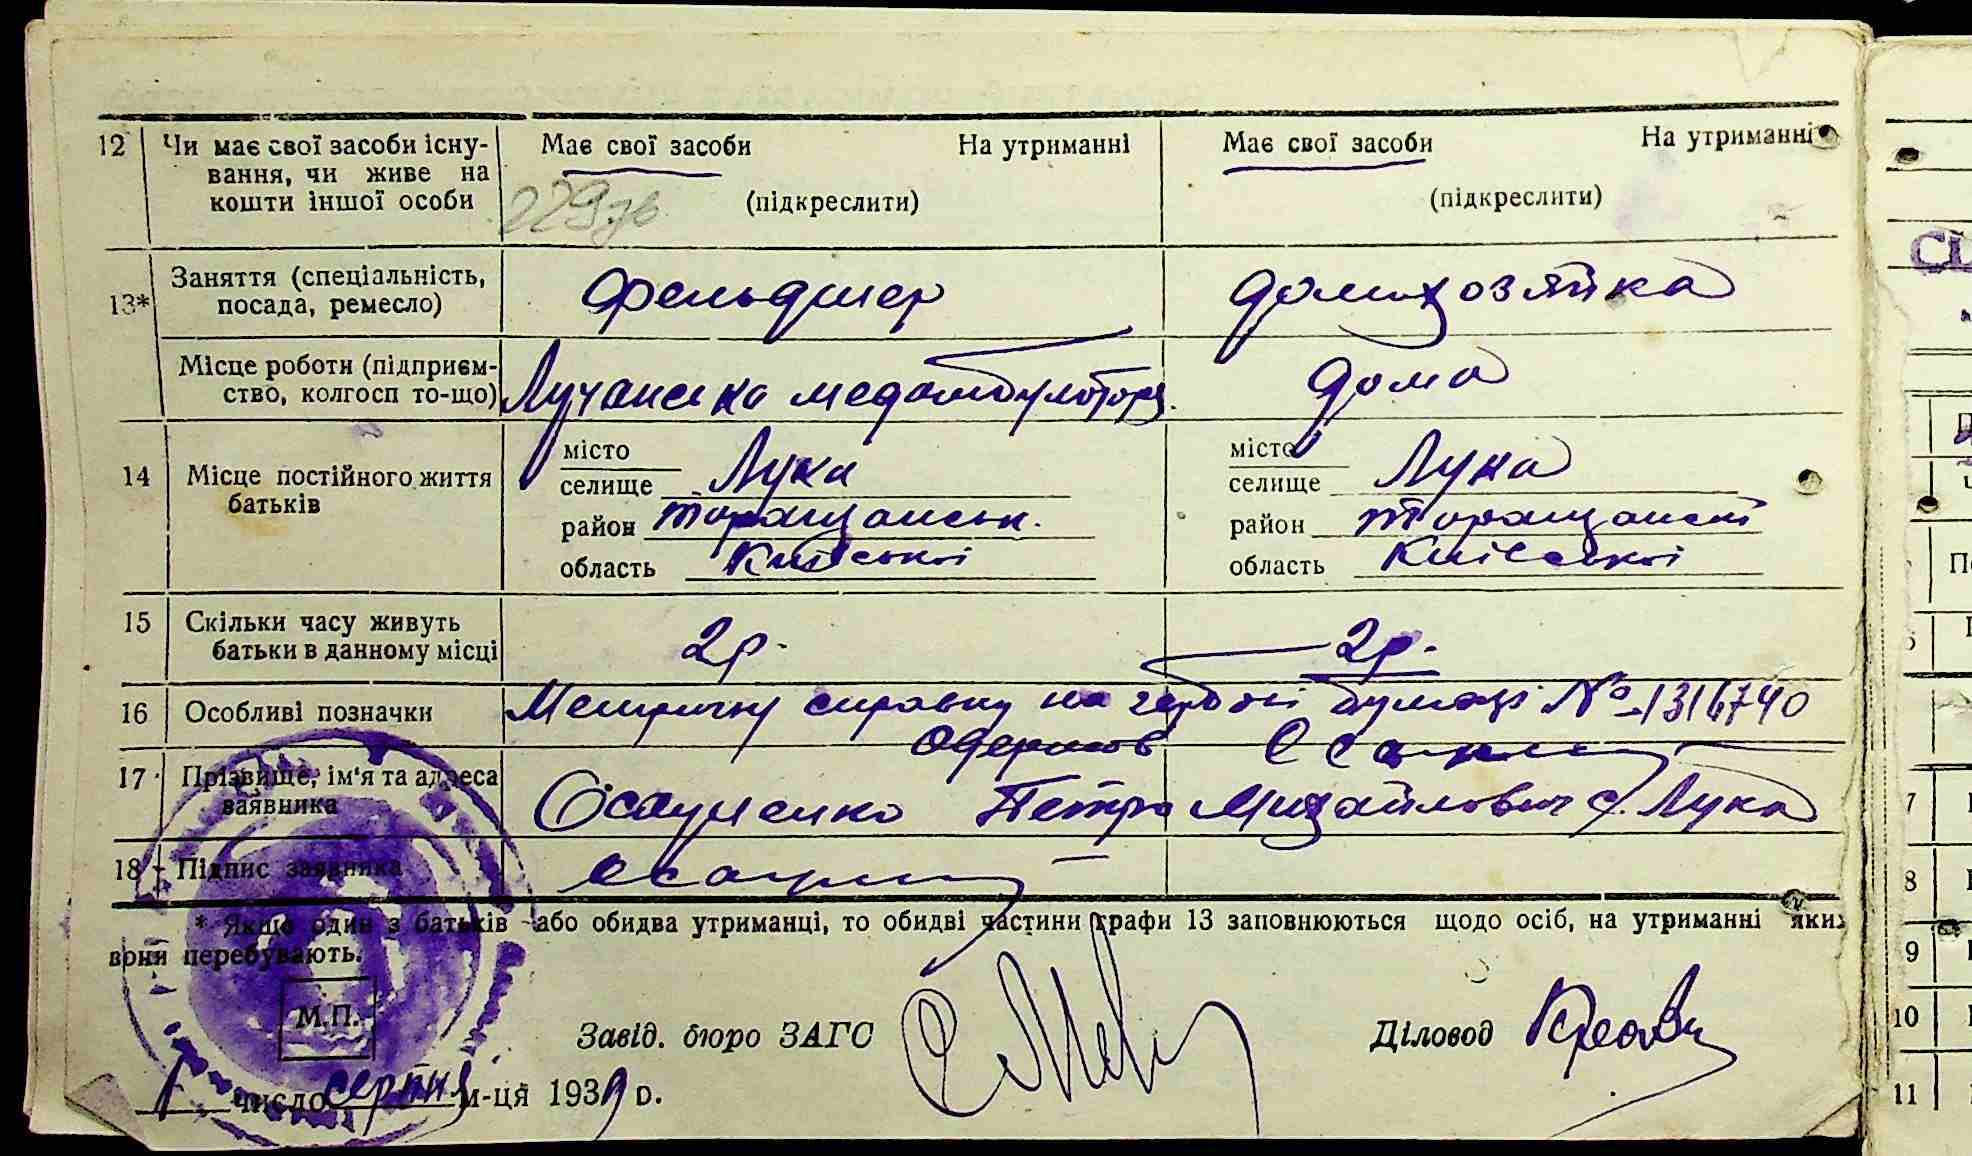 12 Чи має свої засоби існу- Має свої засоби На утриманні Має свої засоби На утриманні
вання, чи живе на
кошти іншої особи (підкреслити) (підкреслити)
229зв
13* Заняття (спеціальність, Фельдшер домхозяйка
посада, ремесло)
Місце роботи (підприєм- Лучанська медамбулаторя дома
ство, колгосп то-що)
14 Місце постійного життя місто місто
батьків селище Лука селище Лука
район таращанськ. район таращанскі
область Київської область Київської
15 Скільки часу живуть 2р. 2р.
батьки в данному місці
16 Особливі позначки Метричну справку на гербові бумазі № 1316740
одержав
17 Прізвище, ім'я та адреса Осауленко Петро Михайлович с. Лука
заявника
18 Підпис заявника
* Якщо один з батьків або обидва утриманці, то обидві частини графи 13 заповнюються щодо осіб, на утриманні яких
вони перебувають.
М.П.
Завід. бюро ЗАГС Діловод
1 число серпня м-ця 1939 р.
7
8
9
10
11